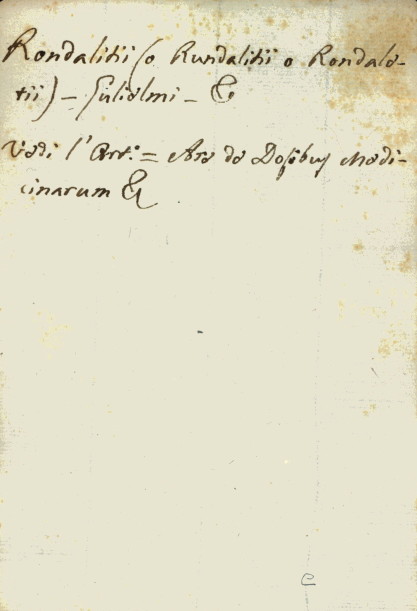 Rondalitii (o Rundalitii o Rondalo-
tii) - Gulielmi - &
Vedi l'Art.° = Ars de Dosibus Medi-
cinarum &
e